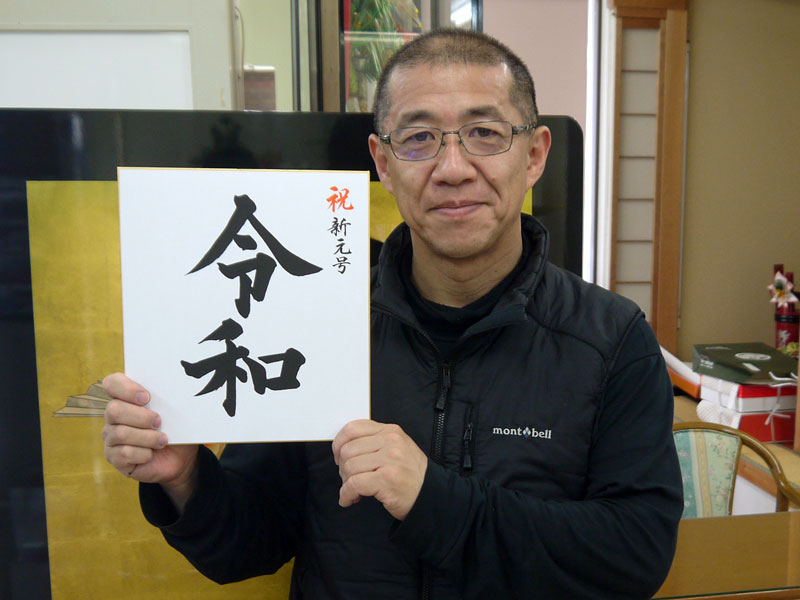 祝新元号
令和
mont•bell